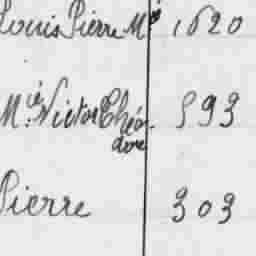 Louis Pierre Mie 1620
Mie Victor Théo- 593
dore
Pierre 303